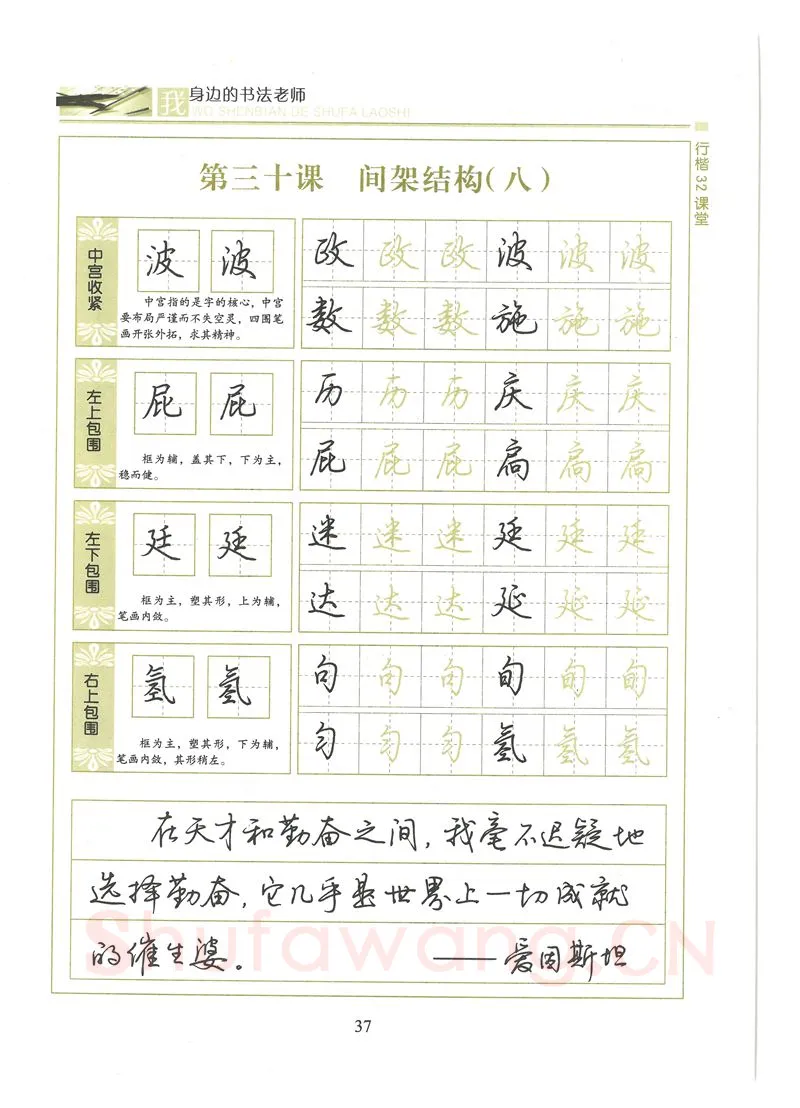 我身边的书法老师
WO SHENBIAN DE SHUFA LAOSHI
行楷32课堂
第三十课 间架结构(八)
中宫收紧
波 波
中宫指的是字的核心，中宫
要布局严谨而不失空灵，四围笔
画开张外拓，求其精神。
政 政 政 波 波 波
数 数 数 施 施 施
左上包围
屁 屁
框为辅，盖其下，下为主，
稳而健。
历 历 历 庆 庆 庆
屁 屁 屁 扁 扁 扁
左下包围
廷 廷
框为主，塑其形，上为辅，
笔画内敛。
迷 迷 迷 廷 廷 廷
达 达 达 延 延 延
右上包围
氢 氢
框为主，塑其形，下为辅，
笔画内敛，其形稍左。
句 句 句 旬 旬 旬
匀 匀 匀 氢 氢 氢
在天才和勤奋之间，我毫不迟疑地
选择勤奋，它几乎是世界上一切成就
的催生婆。 ——爱因斯坦
Shufawang.CN
37